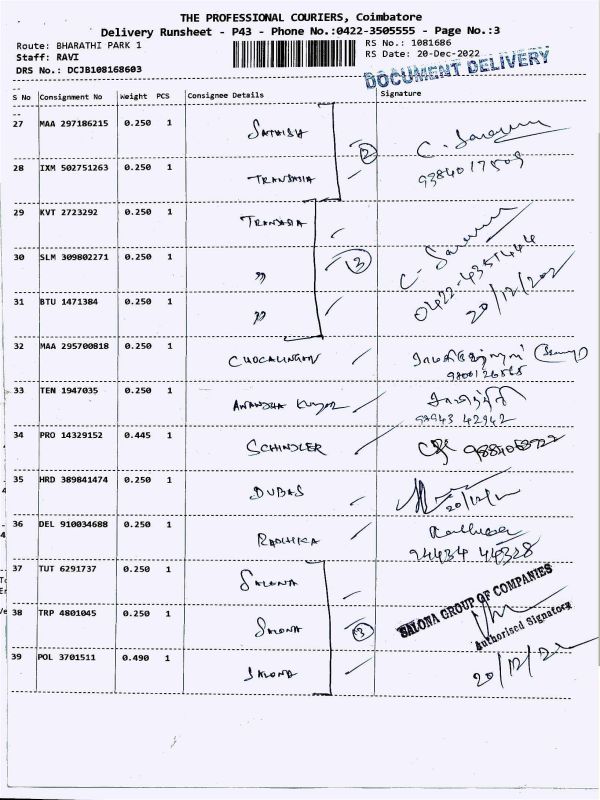 THE PROFESSIONAL COURIERS, Coimbatore
Delivery Runsheet - P43 - Phone No.:0422-3505555 - Page No.:3
Route: BHARATHI PARK 1 RS No.: 1081686
Staff: RAVI RS Date: 20-Dec-2022
DRS No.: DCJB108168603
DOCUMENT DELIVERY
S No Consignment No Weight PCS Consignee Details Signature
27 MAA 297186215 0.250 1 SATHISH C.
2
28 IXM 502751263 0.250 1 TRANSASIA 9384017509
29 KVT 2723292 0.250 1 TRANSASIA
30 SLM 309802271 0.250 1 " 3 C.
0422-4351444
31 BTU 1471384 0.250 1 " 20/12/202
32 MAA 295700818 0.250 1 CHOCALINGAM
33 TEN 1947035 0.250 1 Kumar
97943 42942
34 PRO 14329152 0.445 1 SCHINDLER
35 HRD 389841474 0.250 1 DUBAS 20/12/2
36 DEL 910034688 0.250 1 RADHIKA Radhika
94434 44328
37 TUT 6291737 0.250 1 SALONA
SALONA GROUP OF COMPANIES
38 TRP 4801045 0.250 1 SALONA 3
Authorised Signatory
39 POL 3701511 0.490 1 SALONA 20/12/22